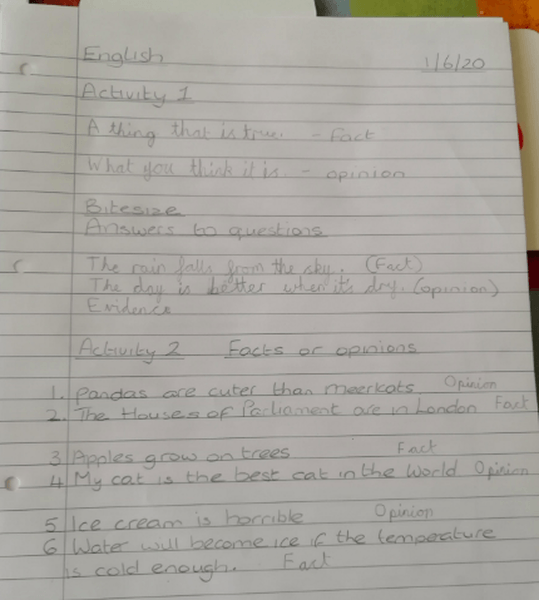 English 1/6/20
Activity 1
A thing that is true. - Fact
What you think it is. - opinion
Bitesize
Answers to questions
The rain falls from the sky. (Fact)
The day is better when it's dry. (opinion)
Evidence
Activity 2 Facts or opinions
1. Pandas are cuter than meerkats Opinion
2. The Houses of Parliament are in London Fact
3 Apples grow on trees Fact
4 My cat is the best cat in the world Opinion
5 Ice cream is horrible Opinion
6 Water will become ice if the temperature
is cold enough. Fact